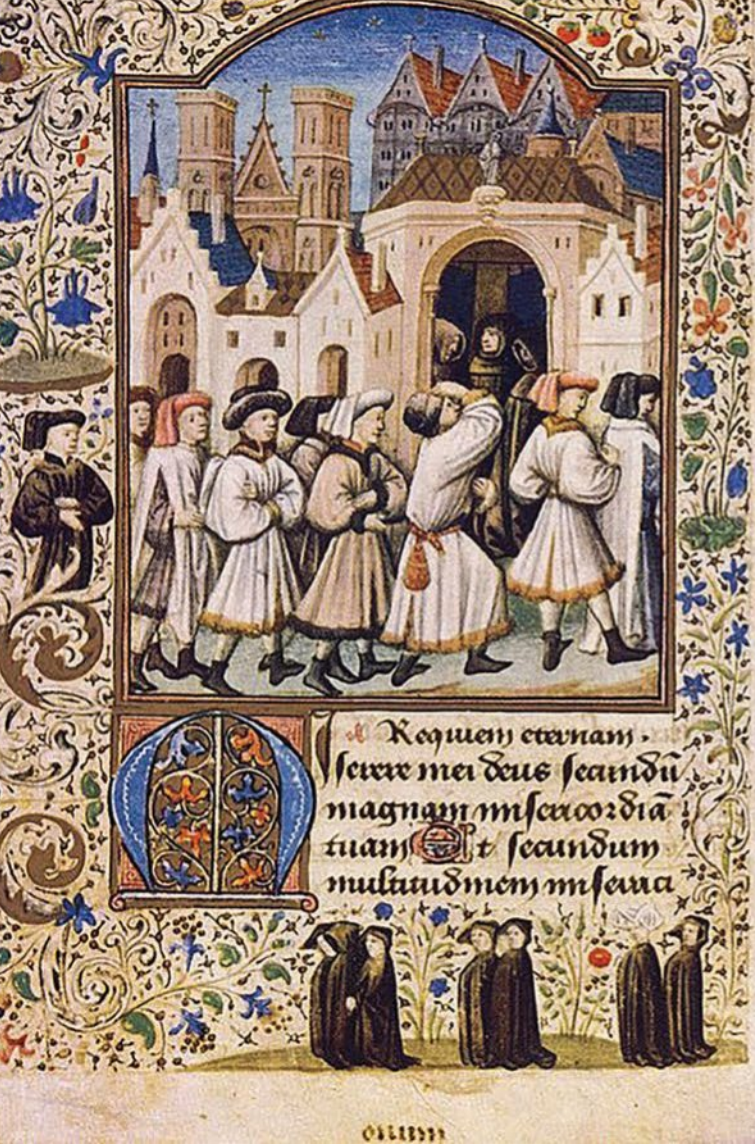 Requiem eternam.
M
serere mei deus secundū
magnam misericordiā
tuam Et secundum
multitudinem miseraci